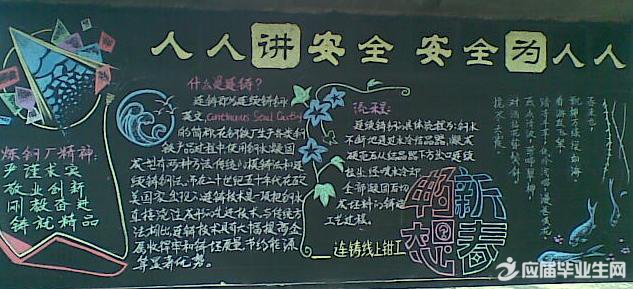 人人讲安全 安全为人人
炼钢厂精神:
严谨求实
敬业创新
刚毅奋进
铸就精品
什么是连铸?
连铸即为连续铸钢
英文, Continuous Steel Casting
的简称在钢铁厂生产各类钢
铁产品过程中使用钢水凝固
成型有两种方法传统的模铸法和连
续铸钢法。而在二十世纪五十年代在欧
美国家出现的连铸技术是一项把钢水
直接浇注成形的先进技术。与传统方
法相比连铸技术具有大幅提高金
属收得率和铸坯质量节约能源
等显著优势。
流程:
连续铸钢的具体流程为:钢水
不断地通过水冷结晶器,凝成
硬壳后从结晶器下方出口连续
拉出经喷水冷却
全部凝固后切
成坯料的铸造
工艺过程。
——连铸线上钳工
新春
的
想
应届毕业生网